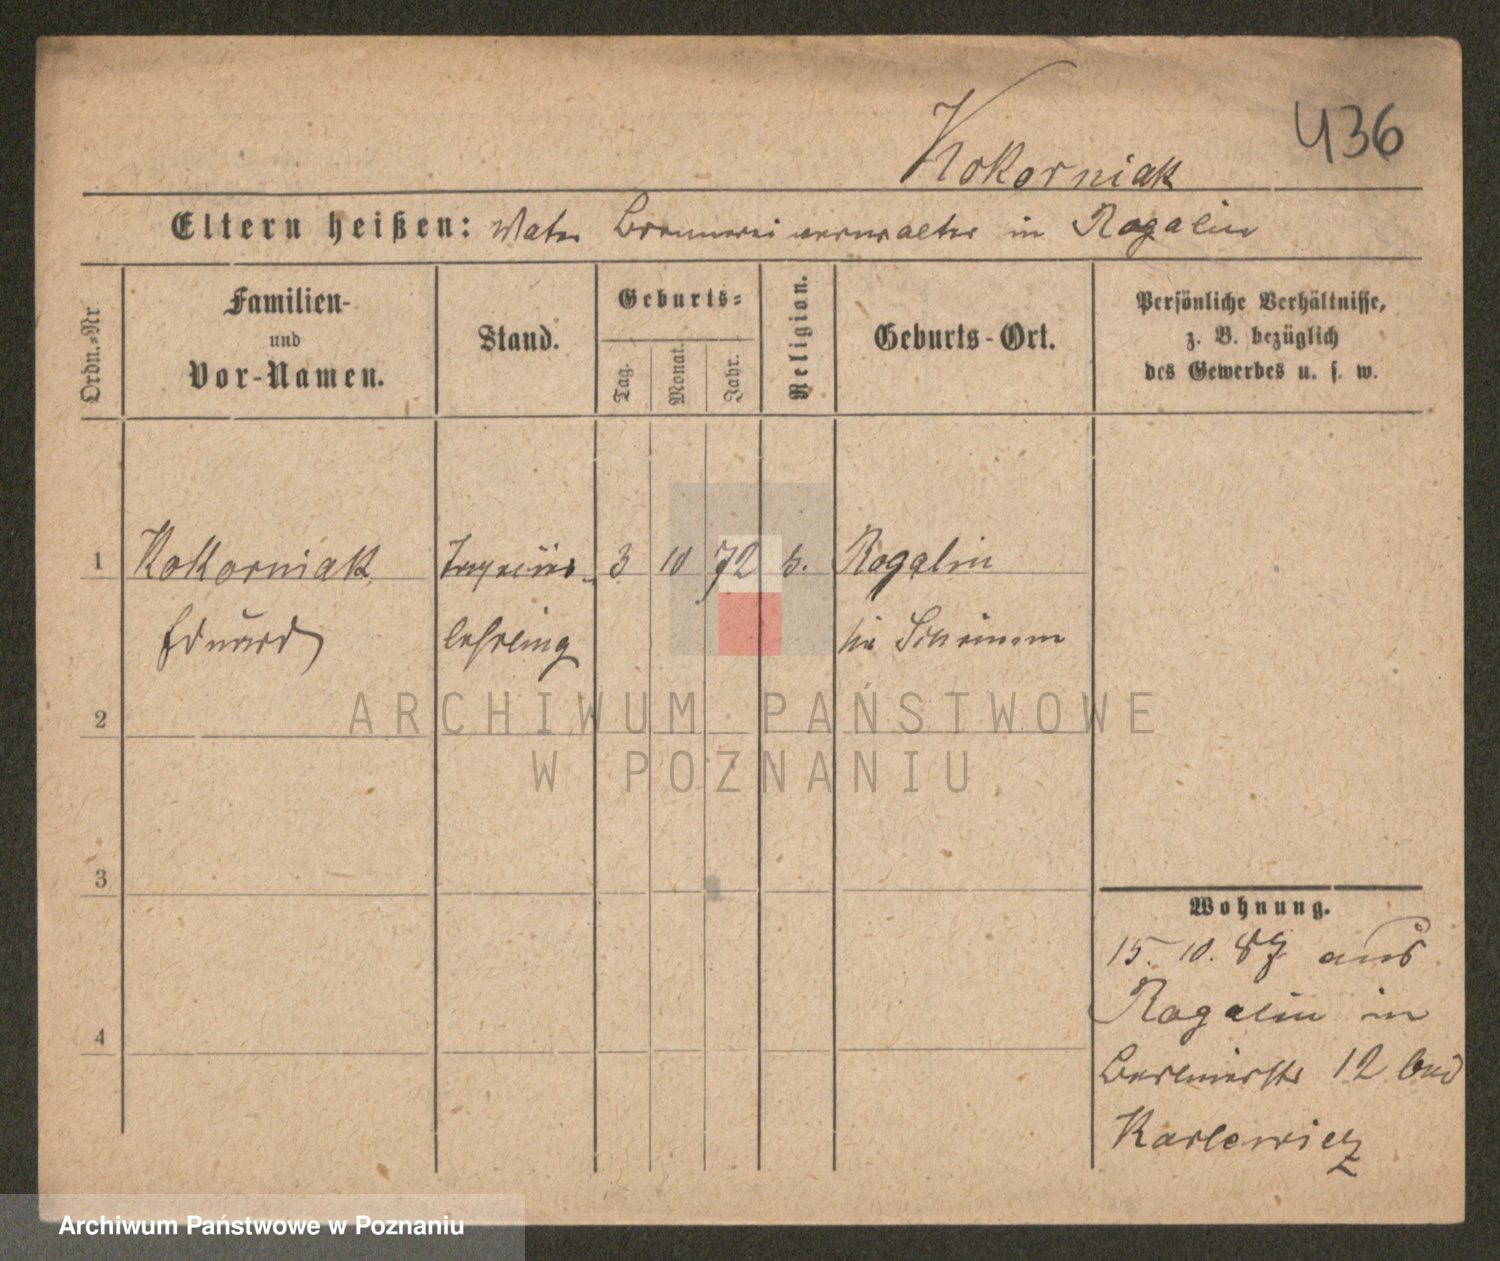 Kokorniak
436
Eltern heißen: Vater Brennereiverwalter in Rogalin
Ordn.=Nr
Familien-
und
Vor-Namen.
Stand.
Geburts=
Tag.
Monat.
Jahr.
Religion.
Geburts-Ort.
Persönliche Verhältnisse,
z. B. bezüglich
des Gewerbes u. s. w.
1 Kokorniak 3 10 72 Rogalin
Eduard lehrling Schrimm
2
3
4
Wohnung.
15. 10. 87 aus
Rogalin in
Berlinerstr 12 bei
Karlewicz
ARCHIWUM PAŃSTWOWE
W POZNANIU
Archiwum Państwowe w Poznaniu